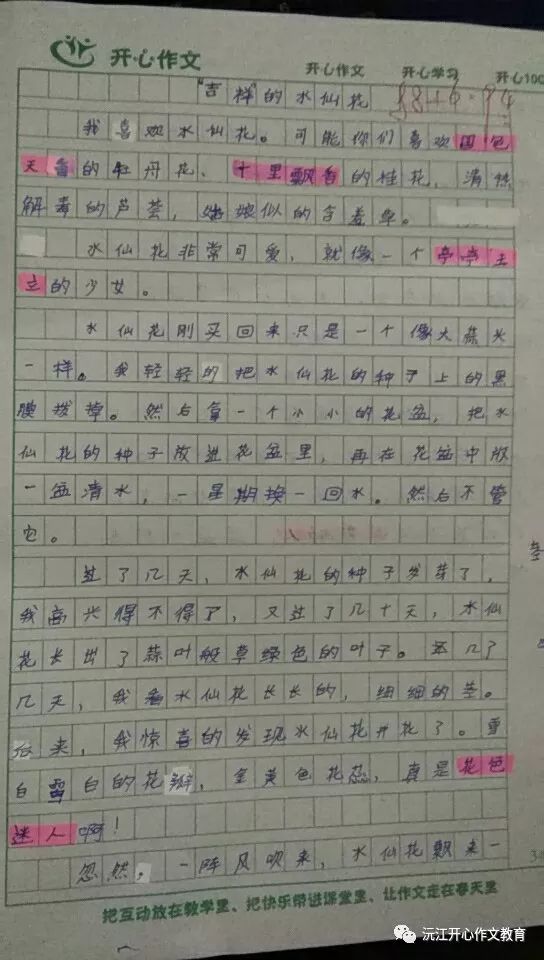 开心作文 开心作文 开心学习 开心100
“吉祥”的水仙花 88+6=94
我喜欢水仙花。可能你们喜欢国色
天香的牡丹花、十里飘香的桂花,清热
解毒的芦荟,姑娘似的含羞草。
水仙花非常可爱,就像一个亭亭玉
立的少女。
水仙花刚买回来只是一个像大蒜头
一样。我轻轻的把水仙花的种子上的黑
膜拔掉。然后拿一个小小的花盆,把水
仙花的种子放进花盆里,再在花盆中放
一盆清水,一星期换一回水。然后不管
它。
过了几天,水仙花的种子发芽了,
我高兴得不得了,又过了几十天,水仙
花长出了蒜叶般草绿色的叶子。又几了
几天,我看水仙花长长的,细细的茎。
后来,我惊喜的发现水仙花开花了。雪
白雪白的花瓣,金黄色花蕊,真是花色
迷人啊!
忽然,一阵风吹来,水仙花飘来一
把互动放在教学里、把快乐带进课堂里、让作文走在春天里
沅江开心作文教育